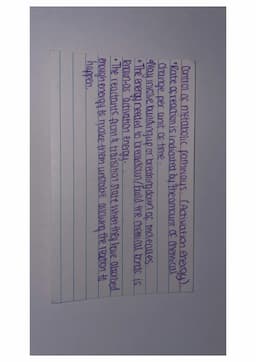 Control of metabolic pathways (Activation energy)
• Rate of reaction is indicated by the amount of chemical
change per unit of time.
• May involve building up or breaking down of molecules
• The energy needed to breakdown/build the chemical bonds is
known as activation energy.
• The reactants form a transition state when they have absorbed
enough energy to make them unstable allowing the reaction to
happen.